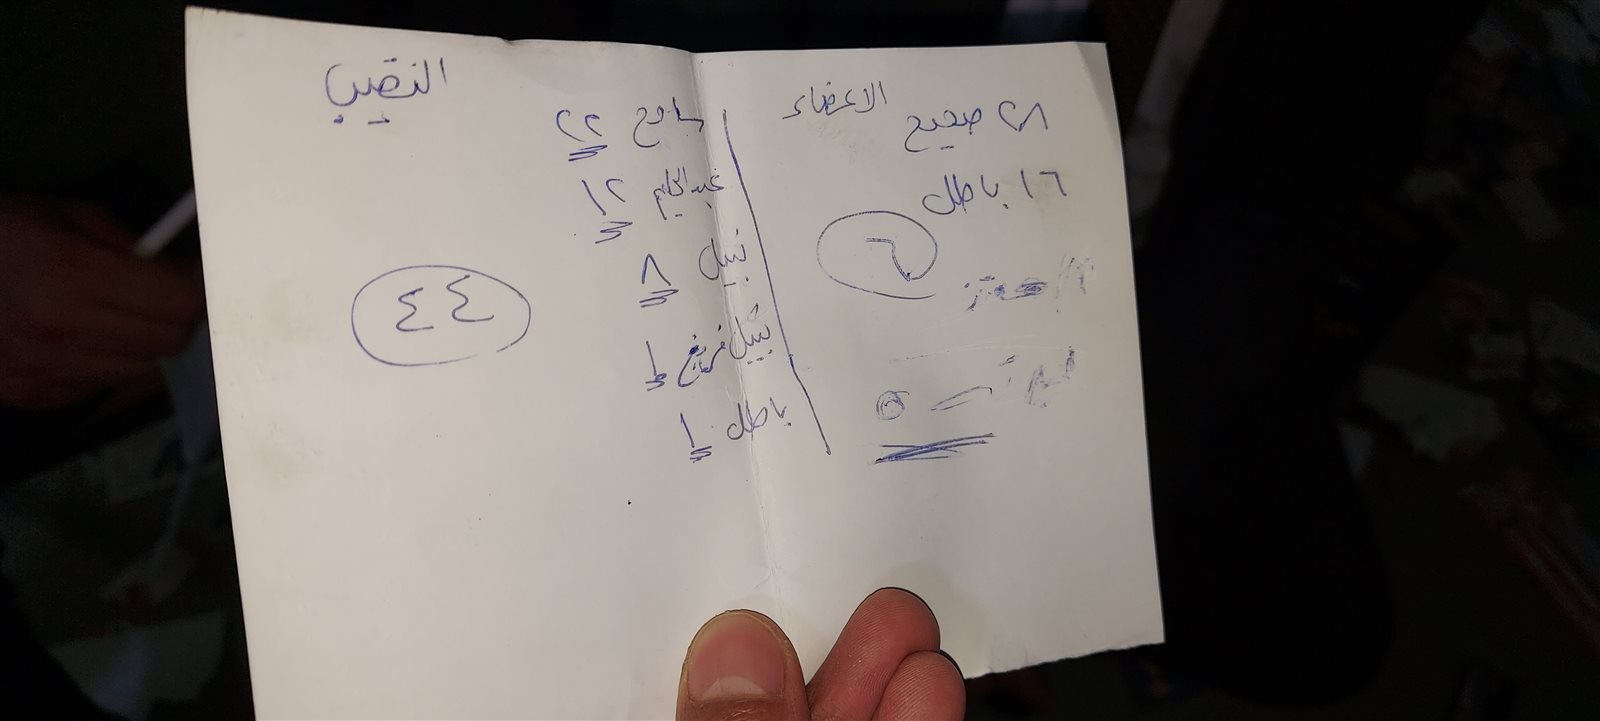 الاعضاء
٢٨ صحيح
١٦ باطل
٦
٥
النقيب
سامح ٢٢
عبدالحليم ١٢
نبيل ٨
نبيل فريد ١
باطل ١
٤٤